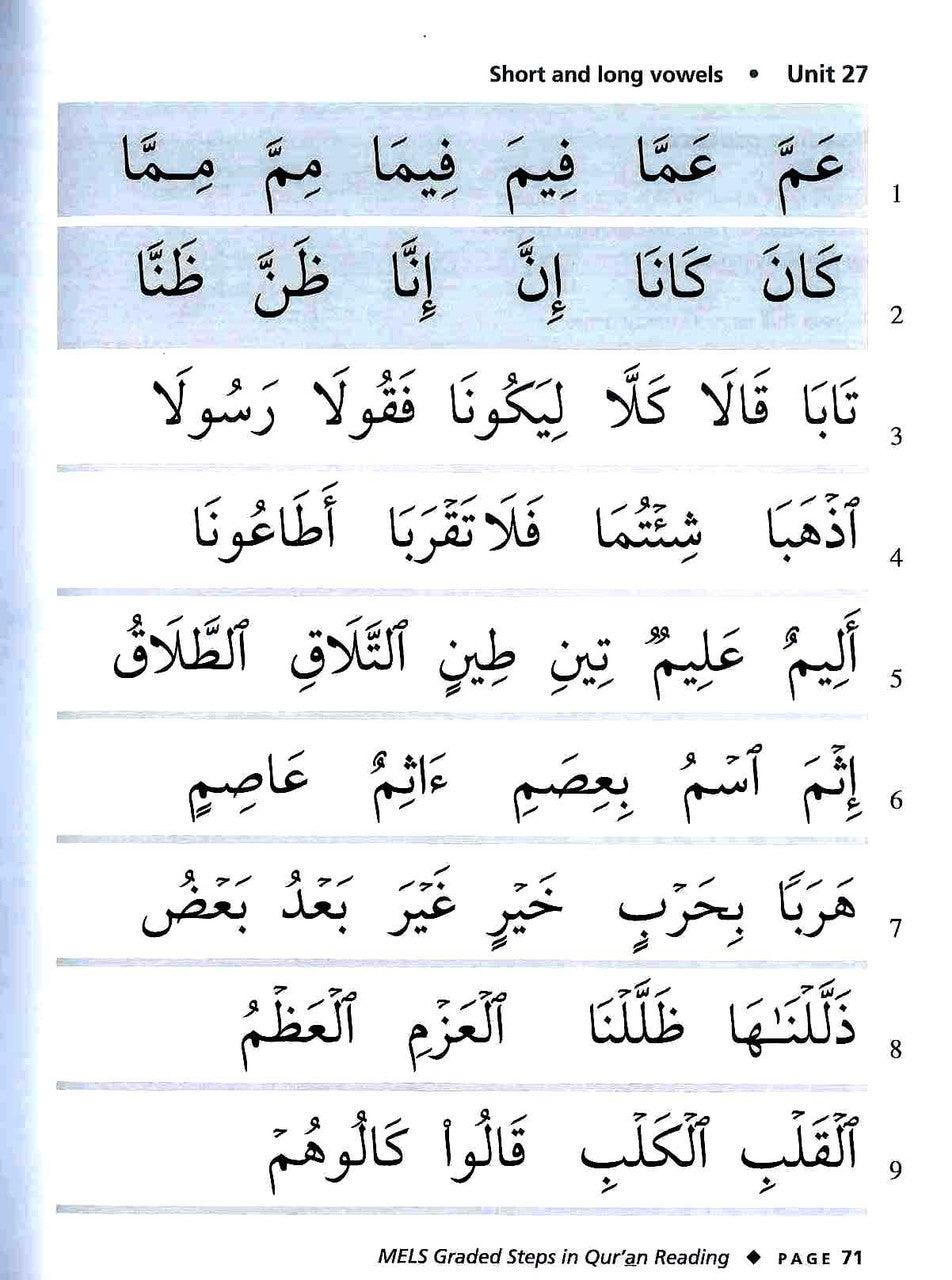 Short and long vowels • Unit 27
عَمَّ عَمَّا فِيمَ فِيمَا مِمَّ مِـمَّا 1
كَانَ كَانَا إِنَّ إِنَّا ظَنَّ ظَنَّا 2
تَابَا قَالَا كَلَّا لِيَكُونَا فَقُولَا رَسُولَا 3
ٱذۡهَبَا شِئۡتُمَا فَلَا تَقۡرَبَا أَطَاعُونَا 4
أَلِيمٌ عَلِيمٌ تِينِ طِينٍ ٱلتَّلَاقِ ٱلطَّلَاقُ 5
إِثۡمَ ٱسۡمُ بِعِصَمِ ءَاثِمٌ عَاصِمٍ 6
هَرَبًا بِحَرۡبٍ خَيۡرٍ غَيۡرَ بَعۡدُ بَعۡضُ 7
ذَلَّلۡنَـٰهَا ظَلَّلۡنَا ٱلۡعَزۡمِ ٱلۡعَظۡمُ 8
ٱلۡقَلۡبِ ٱلۡكَلۡبِ قَالُواْ كَالُوهُمۡ 9
MELS Graded Steps in Qur'an Reading ◆ PAGE 71